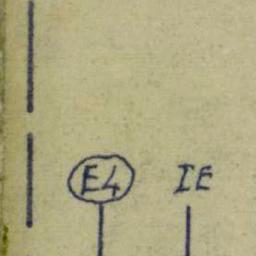 E4 IE